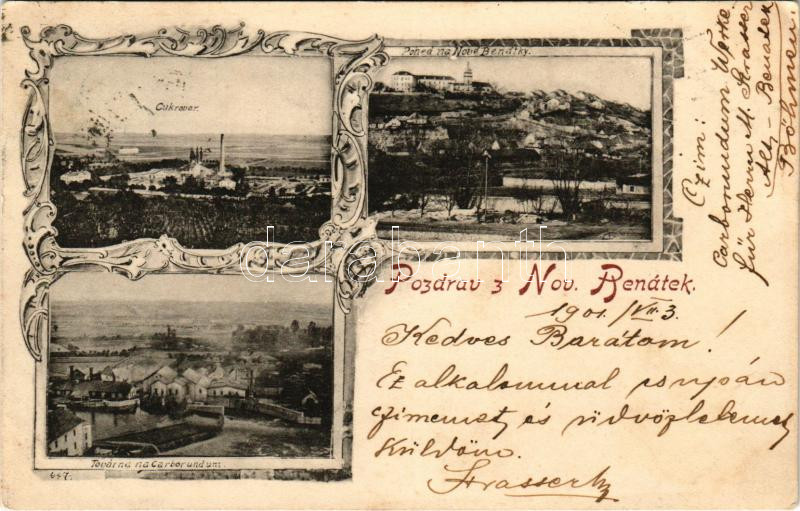 Cukrovar.
Pohled na Nové Benátky.
Továrna na Carborundum.
647.
Pozdrav z Nov. Benátek.
1901. /VII. 3.
Kedves Barátom!
Ez alkalommal csupán
czimemet, és üdvözletemet
küldöm.
Strasser
Czim:
Carborundum Werke
für Herrn M. Strasser
Alt-Benatek
Böhmen.
darabanth